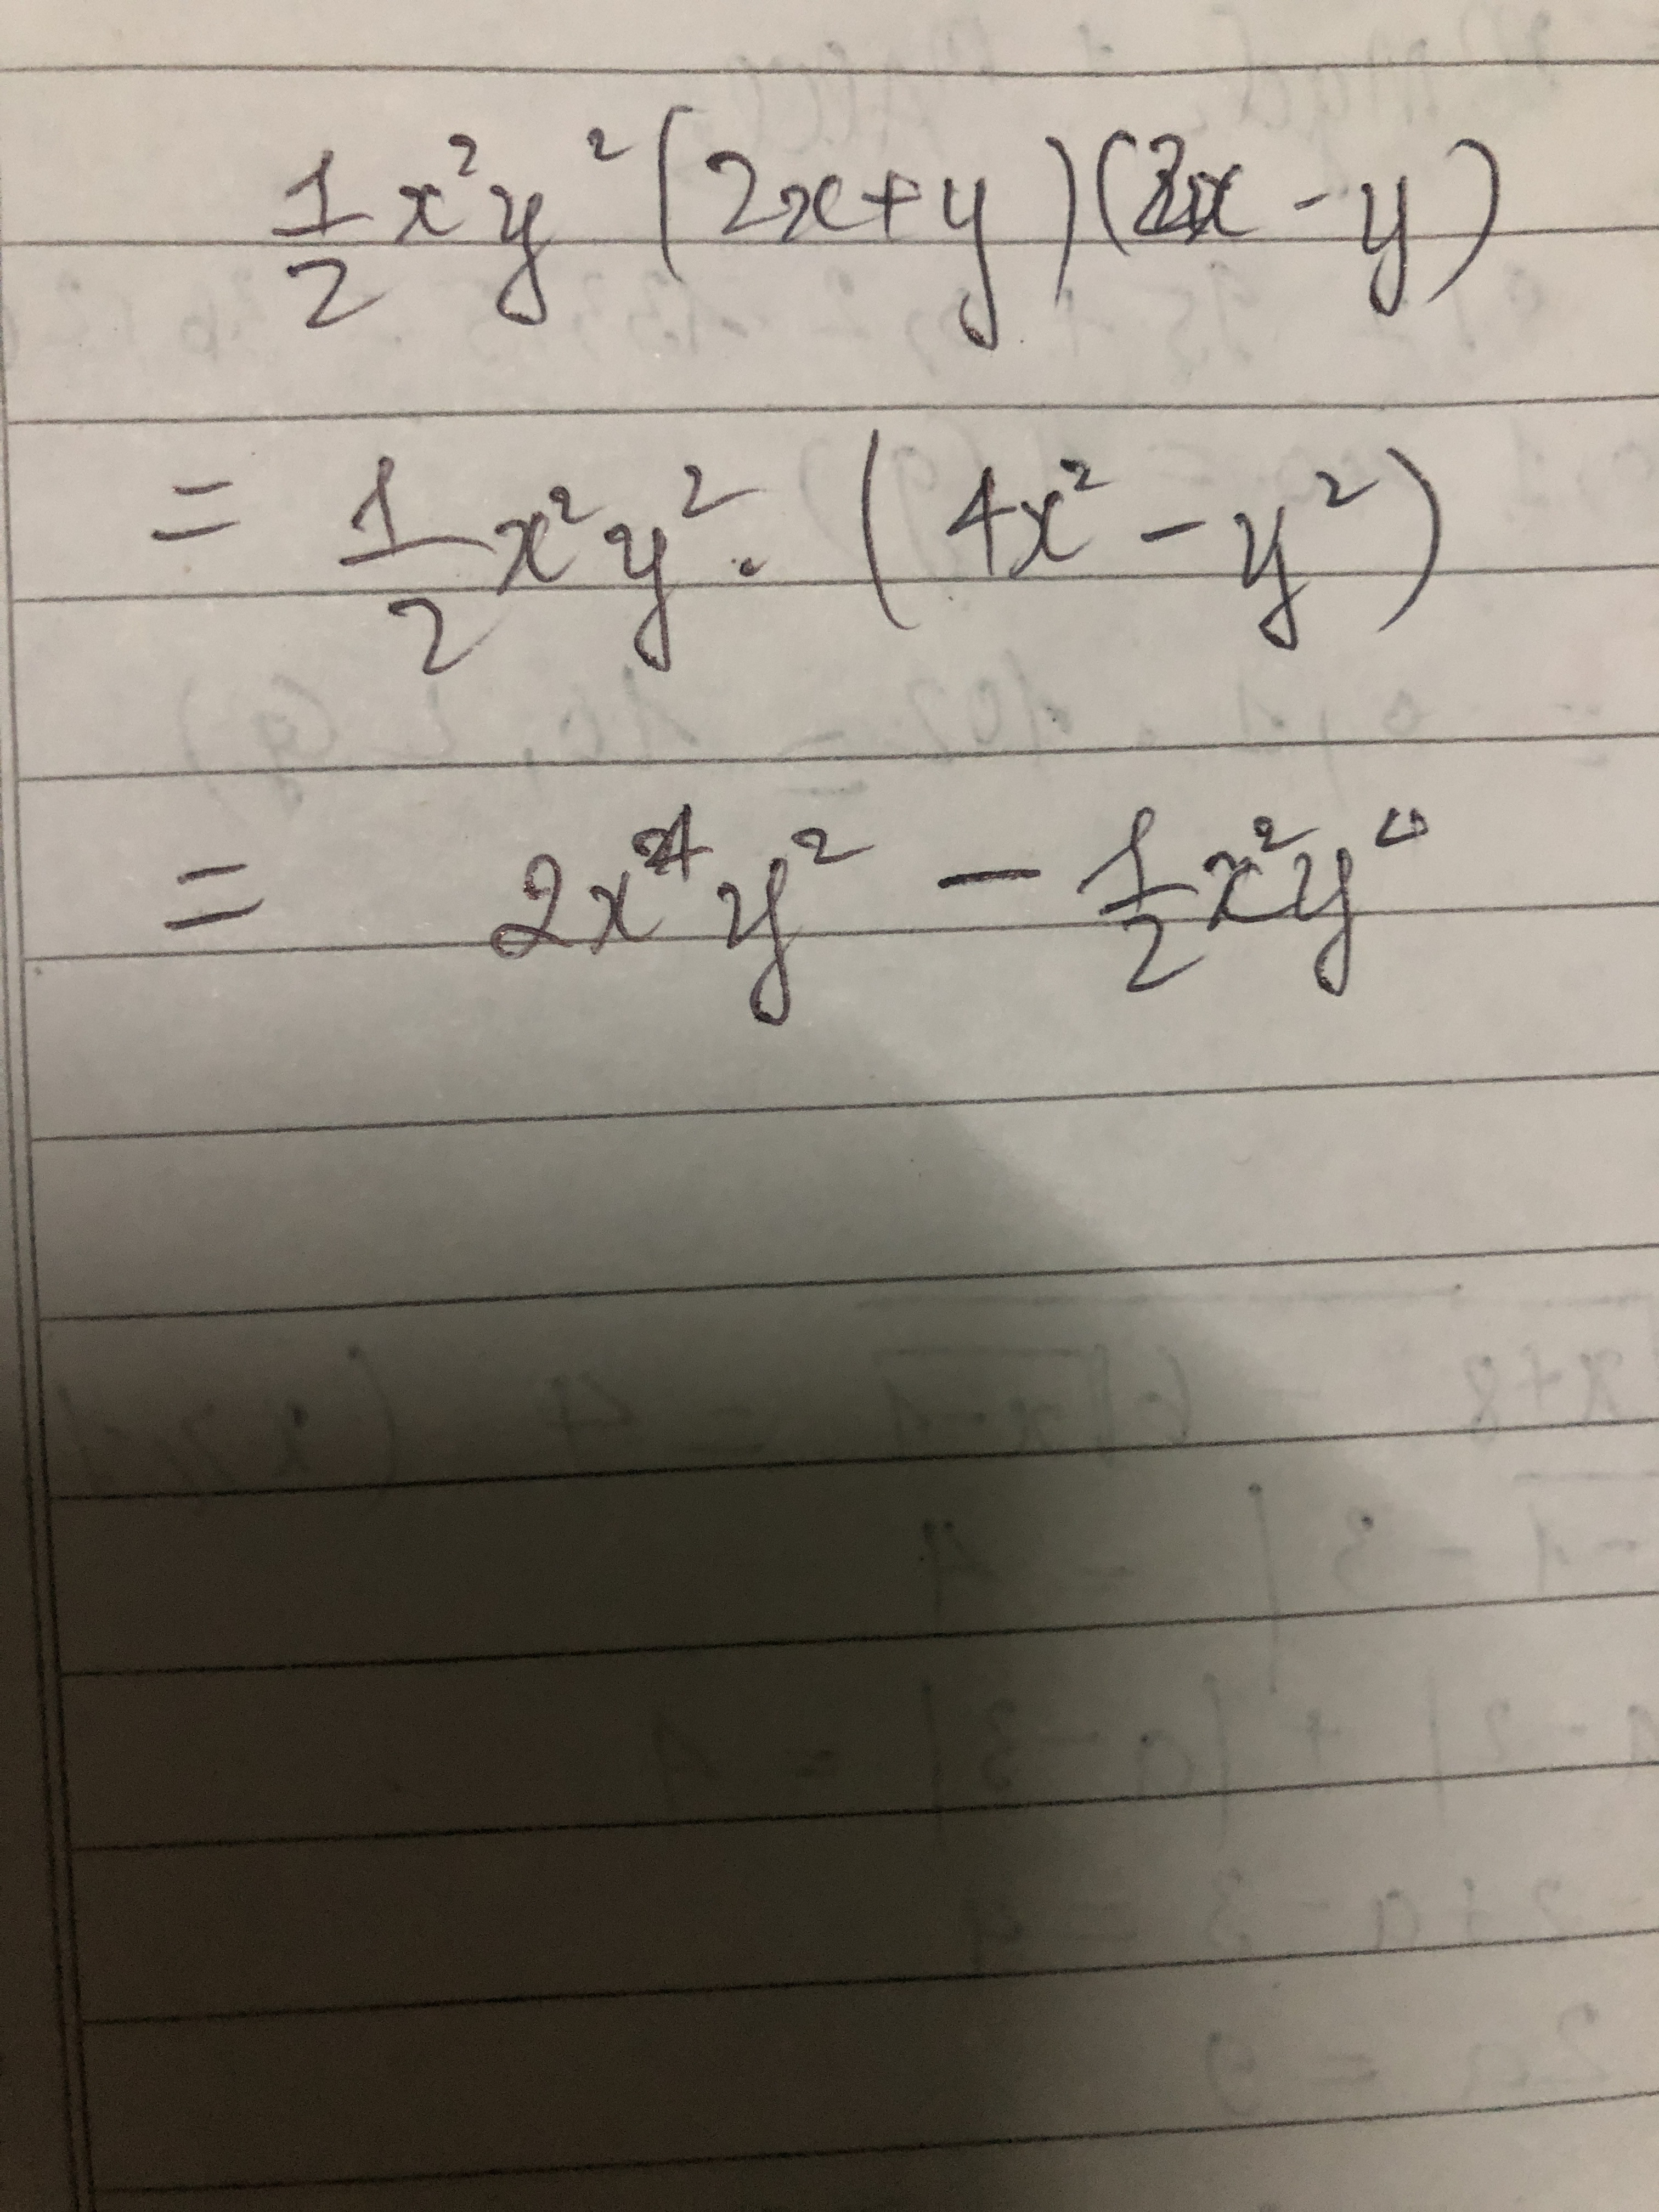 1/2 x²y² (2x+y)(2x-y)
= 1/2 x²y² . (4x² - y²)
= 2x⁴y² - 1/2 x²y